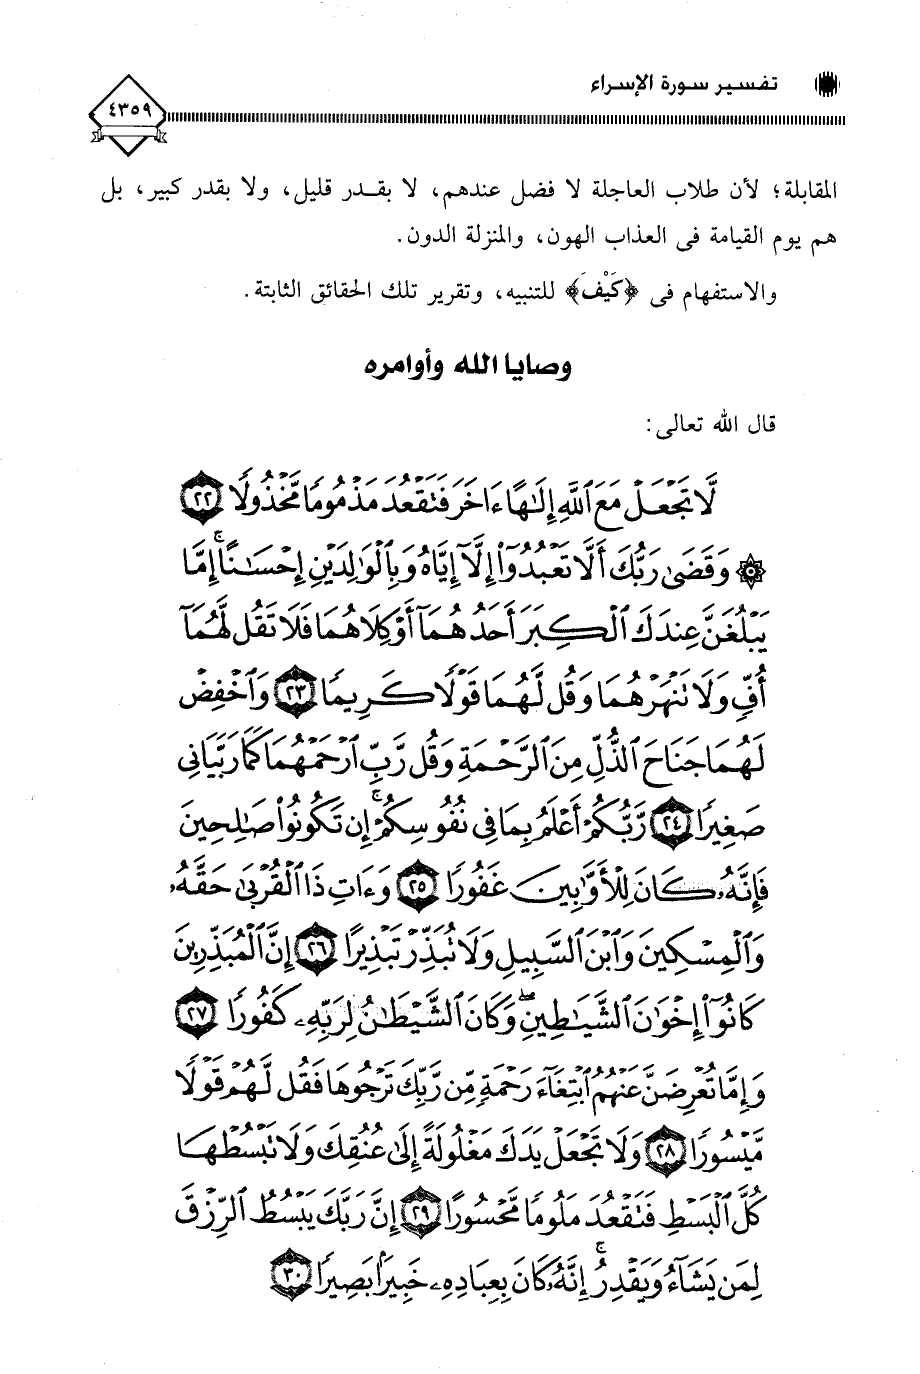 تفسير سورة الإسراء
٤٣٥٩
المقابلة؛ لأن طلاب العاجلة لا فضل عندهم، لا بقدر قليل، ولا بقدر كبير، بل
هم يوم القيامة فى العذاب الهون، والمنزلة الدون.
والاستفهام فى ﴿كَيْفَ﴾ للتنبيه، وتقرير تلك الحقائق الثابتة.
وصايا الله وأوامره
قال الله تعالى:
لَّا تَجْعَلْ مَعَ ٱللَّهِ إِلَـٰهًا ءَاخَرَ فَتَقْعُدَ مَذْمُومًا مَّخْذُولًا ٢٢
۞ وَقَضَىٰ رَبُّكَ أَلَّا تَعْبُدُوٓا۟ إِلَّآ إِيَّاهُ وَبِٱلْوَٰلِدَيْنِ إِحْسَـٰنًا ۚ إِمَّا
يَبْلُغَنَّ عِندَكَ ٱلْكِبَرَ أَحَدُهُمَآ أَوْ كِلَاهُمَا فَلَا تَقُل لَّهُمَآ
أُفٍّ وَلَا تَنْهَرْهُمَا وَقُل لَّهُمَا قَوْلًا كَرِيمًا ٢٣ وَٱخْفِضْ
لَهُمَا جَنَاحَ ٱلذُّلِّ مِنَ ٱلرَّحْمَةِ وَقُل رَّبِّ ٱرْحَمْهُمَا كَمَا رَبَّيَانِى
صَغِيرًا ٢٤ رَّبُّكُمْ أَعْلَمُ بِمَا فِى نُفُوسِكُمْ ۚ إِن تَكُونُوا۟ صَـٰلِحِينَ
فَإِنَّهُۥ كَانَ لِلْأَوَّٰبِينَ غَفُورًا ٢٥ وَءَاتِ ذَا ٱلْقُرْبَىٰ حَقَّهُۥ
وَٱلْمِسْكِينَ وَٱبْنَ ٱلسَّبِيلِ وَلَا تُبَذِّرْ تَبْذِيرًا ٢٦ إِنَّ ٱلْمُبَذِّرِينَ
كَانُوٓا۟ إِخْوَٰنَ ٱلشَّيَـٰطِينِ ۖ وَكَانَ ٱلشَّيْطَـٰنُ لِرَبِّهِۦ كَفُورًا ٢٧
وَإِمَّا تُعْرِضَنَّ عَنْهُمُ ٱبْتِغَآءَ رَحْمَةٍ مِّن رَّبِّكَ تَرْجُوهَا فَقُل لَّهُمْ قَوْلًا
مَّيْسُورًا ٢٨ وَلَا تَجْعَلْ يَدَكَ مَغْلُولَةً إِلَىٰ عُنُقِكَ وَلَا تَبْسُطْهَا
كُلَّ ٱلْبَسْطِ فَتَقْعُدَ مَلُومًا مَّحْسُورًا ٢٩ إِنَّ رَبَّكَ يَبْسُطُ ٱلرِّزْقَ
لِمَن يَشَآءُ وَيَقْدِرُ ۚ إِنَّهُۥ كَانَ بِعِبَادِهِۦ خَبِيرًۢا بَصِيرًا ٣٠